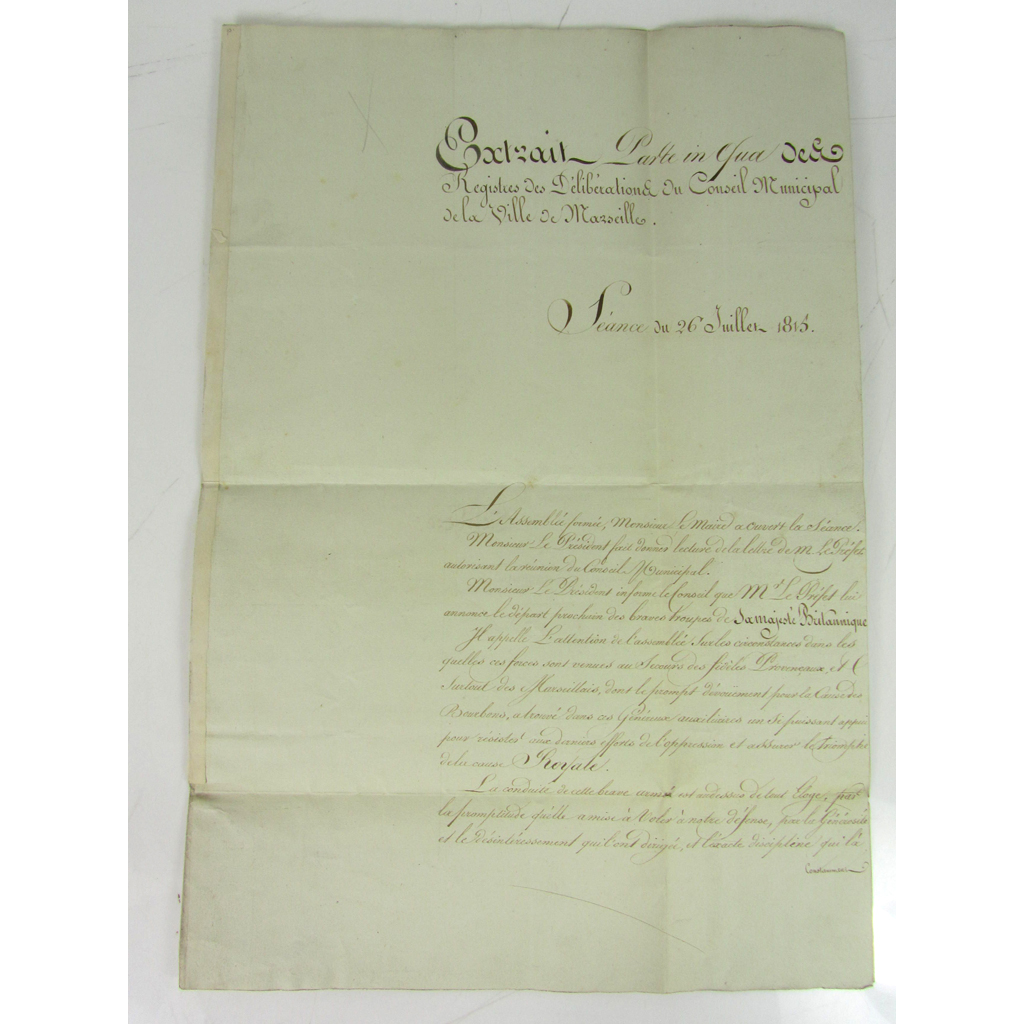 Extrait Parte in Qua des
Registres des Délibérations du Conseil Municipal
de la Ville de Marseille.
Séance du 26 Juillet 1815.
L'Assemblée formée, Monsieur le Maire a ouvert la Séance.
Monsieur Le Président fait donner lecture de la lettre de M. Le Préfet
autorisant la réunion du Conseil Municipal.
Monsieur Le Président informe le Conseil que Mr Le Préfet lui
annonce le départ prochain des braves troupes de Sa majesté Britannique
Il appelle L'attention de l'assemblée Sur les circonstances dans les
quelles ces forces sont venues au Secours des fidèles Provençaux, et
Surtout des Marseillais, dont le prompt dévoüement pour la Cause des
Bourbons, a trouvé dans ces Généreux auxiliaires un Si puissant appui
pour résister aux derniers efforts de l'oppression et assurer le triomphe
de la cause Royale.
La conduite de cette brave armée est audessus de tout Eloge, par
la promptitude qu'elle a mise à Voler à notre défense, par la Générosité
et le désintéressement qui l'ont dirigée, et l'exacte discipline qui l'a
Constamment